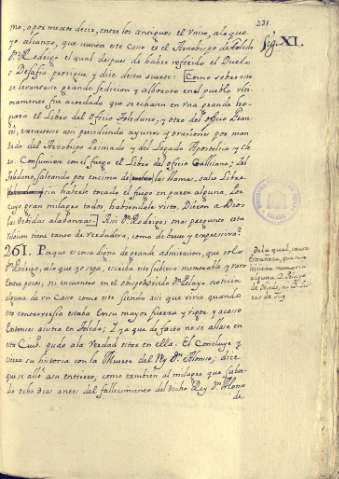 231.
Sig. XI.
mo; o por mejor decir, entre los antiguos el Vnico, a la que
yo alcanzo, que nueva este Caso es el Arzobispo de Toledo
Dn. Rodrigo el qual despues de haber referido el Duelo,
o Desafio prosigue, y dice desta suerte: [Como sobre esto
se levantasse grande sedicion y alboroto en el pueblo, vlti-
mamente fue acordado que se echara en vna grande ho-
guera el Libro del Oficio Toledano, y otro del oficio
precediendo ayunos y oraciones por man-
dado del Arzobispo Primado y del Legado Apostolico y Cle-
ro. Consumiose en el fuego el Libro del oficio Gallicano; el
Toledano, saltando por encima de las llamas, salio Libre
sin haberle tocado el fuego en parte alguna, Lo
cuyo gran milagro todos habiendole visto, Dieron a Dios
las debidas alabanzas.] Assi Dn. Rodrigo; me parece esta
relacion tiene tanto de verdadera, como de breve y expressiva.
261. Porque es cosa digna de grande admiracion, que solo
Dn. Rodrigo, a lo que yo sepa, escriba este sucesso memorable y raro
entre pocos, ni encuentro en el obispo de Oviedo Dn. Pelayo noticia
alguna de vn Caso como este siendo assi que vivia quando
esta controversia estaba en su mayor fuerza y vigor, y acaso
entonces asistia en Toledo; Y ya que de facto no se allase en
esta Ciud. pudo a la Verdad estar en ella. El Concluye y
cierra su historia con la Muerte del Rey Dn. Alonso; dice
que se allò a su entierro, como tambien al milagro que
ocho dias antes del fallecimiento del dicho Rey Dn. Alonso
de
De la qual, causa
no
hiciesse memoria
alguna D. Pelayo
de Oviedo,